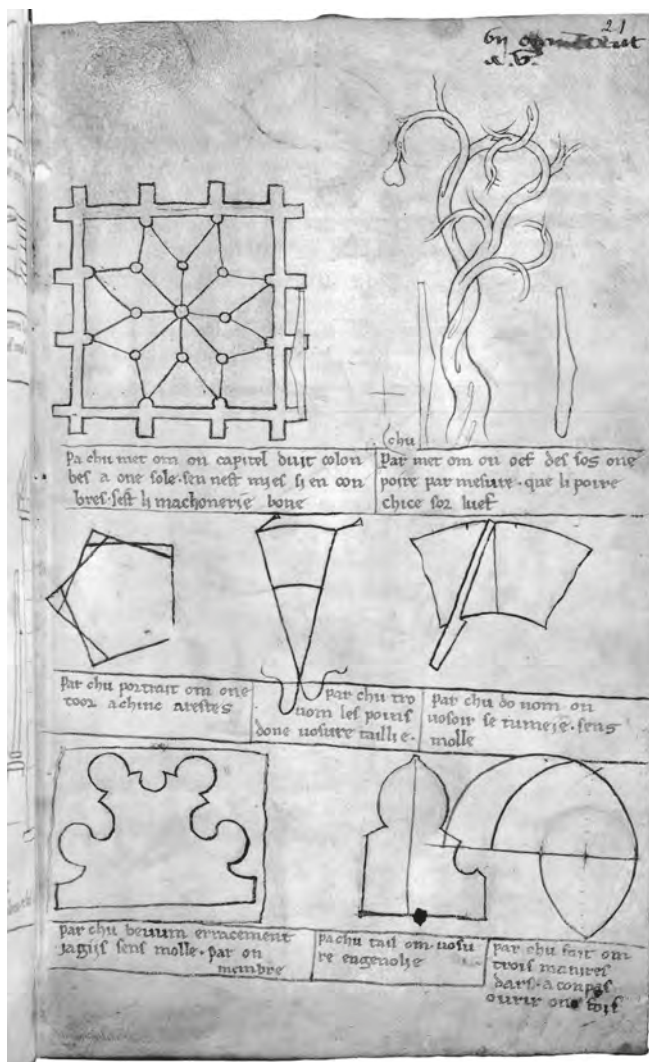 21
a.b.
pa chu met om on capitel duit colon
bes a one sole·sen nest mies si en con
bres·sest li machonerie bone
chu
par met om on oef des sos one
poire par mesure·que li poire
chice sor luef
par chu portrait om one
toor a chinc arestes
par chu tro
vom les poins
done vosure taillie·
par chu do nom on
vosoir se tumeie·sens
molle
par chu bevum erracement
jagiis sens molle·par on
membre
pa chu tail om vosu
re engenolie
par chu fait om
trois manires
dars·a conpas
ovrir one fois